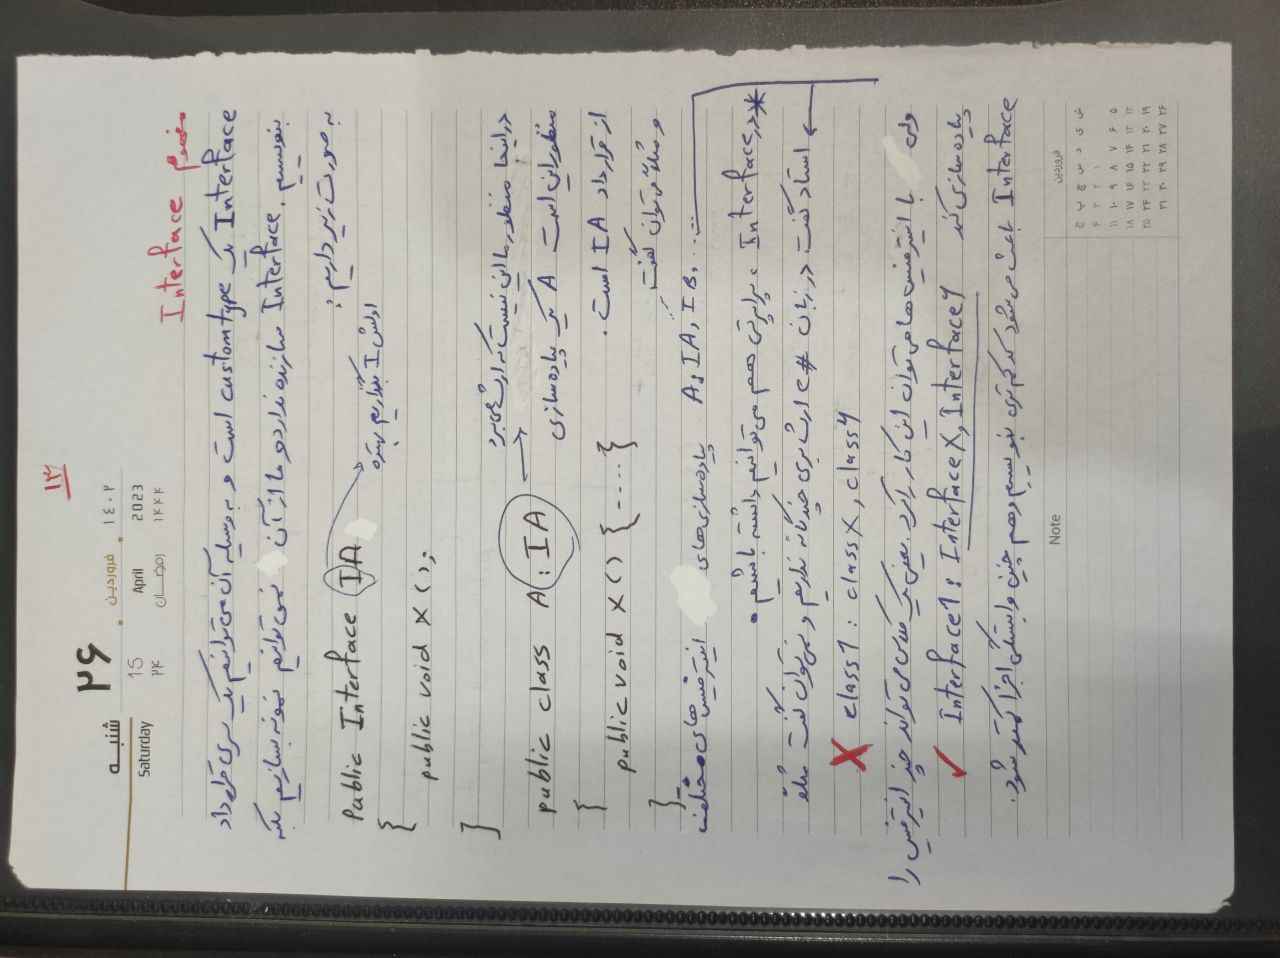 ۱۳
شنبه ۲۶ فروردین ۱۴۰۲
Saturday 15 April 2023
۲۴ رمضان ۱۴۴۴
مفهوم Interface
Interface یک custom type است و به وسیله آن می توانیم یک سری قرارداد
بنویسیم. Interface سازنده ندارد و ما از آن نمی توانیم نمونه بسازیم بلکه
به صورت زیر داریم:
Public Interface IA
اولش I بگذاریم بهتره
{
public void X();
}
در اینجا منظور ما این نیست که ارث می برد
public class A : IA
منظور این است A یک پیاده سازی
{
از قرارداد IA است.
public void X() {....}
و مثلاً می توان گفت
}
A: IA, IB, ... پیاده سازی های اینترفیس های مختلف
* در Interface، پراپرتی هم می توانیم داشته باشیم.
استاد گفت در زبان c# ارث بری چندگانه نداریم و نمی توان گفت مثلاً
✗ class1 : classX, classY
ولی با اینترفیس ها می توان این کار را کرد. یعنی یک کلاس می تواند چند اینترفیس را
پیاده سازی کند
✓ Interface1 : InterfaceX, InterfaceY
Interface باعث می شود کد کم تری بنویسیم و هم چنین وابستگی اجزا کمتر شود.
Note
فروردین
ش ی د س چ پ ج
۱ ۲ ۳ ۴
۵ ۶ ۷ ۸ ۹ ۱۰ ۱۱
۱۲ ۱۳ ۱۴ ۱۵ ۱۶ ۱۷ ۱۸
۱۹ ۲۰ ۲۱ ۲۲ ۲۳ ۲۴ ۲۵
۲۶ ۲۷ ۲۸ ۲۹ ۳۰ ۳۱